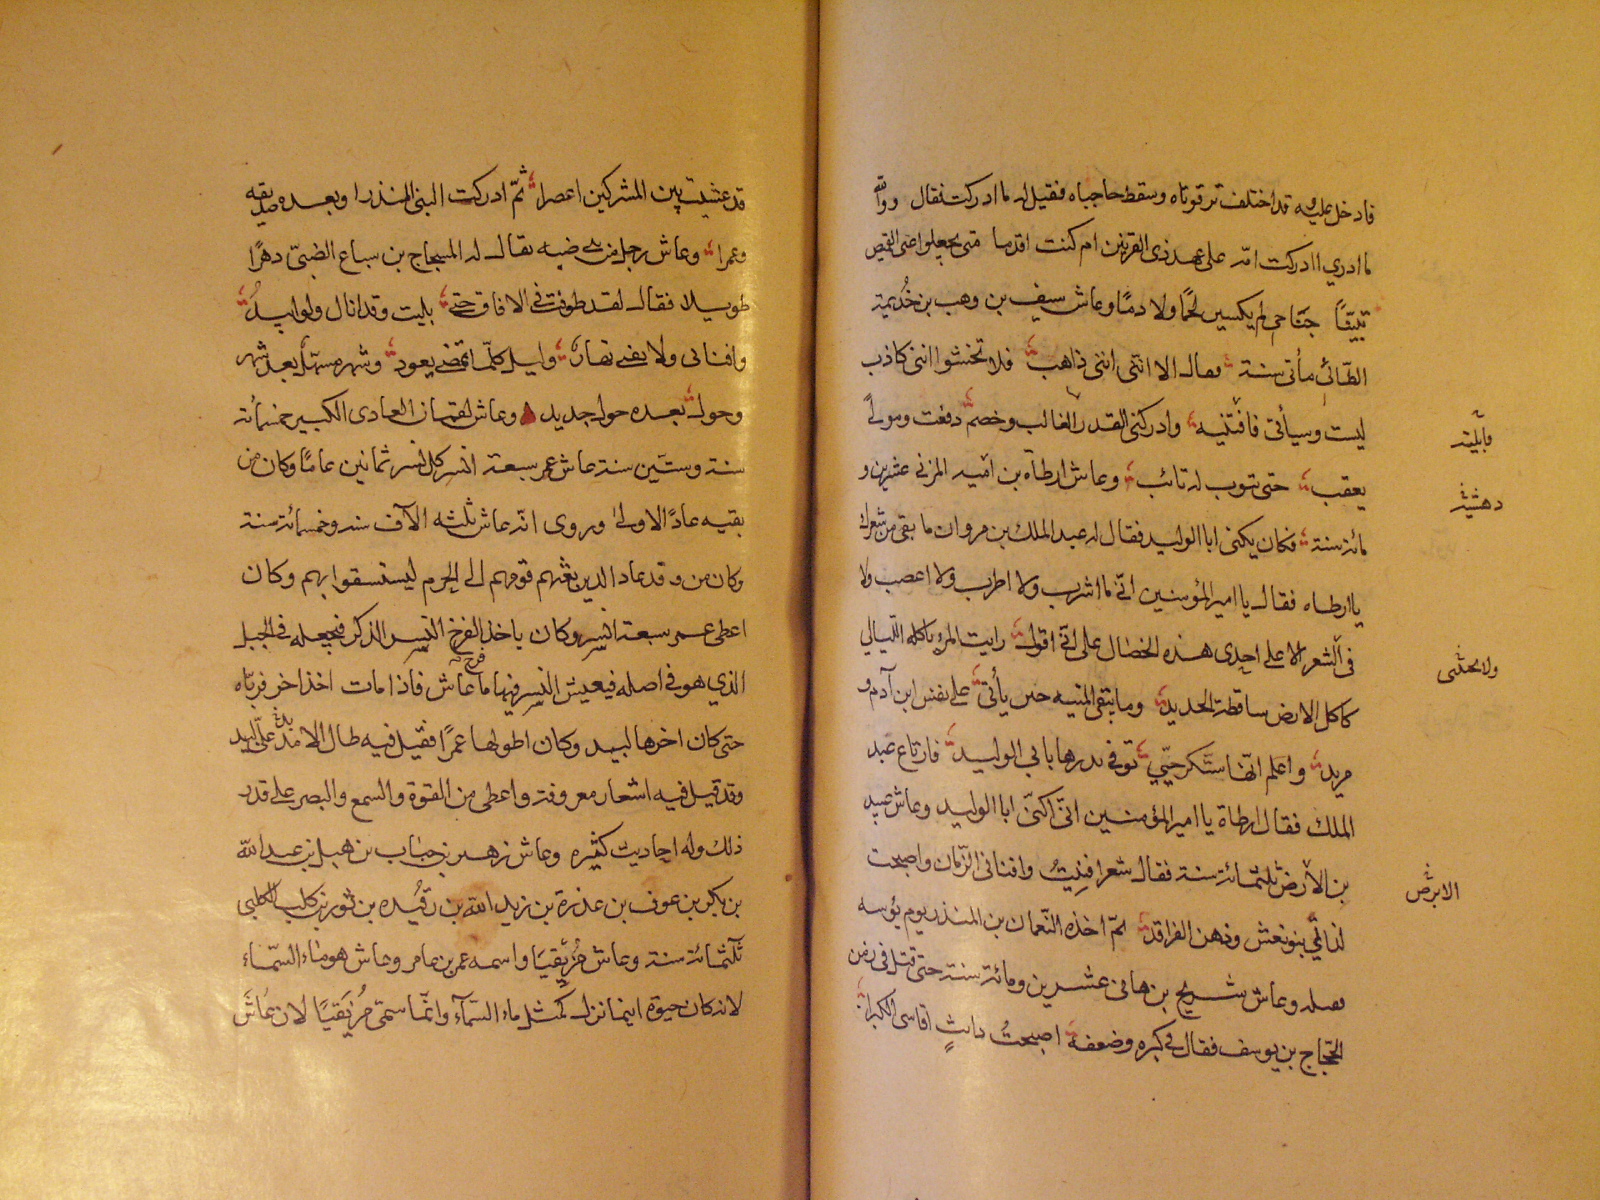 فادخل عليه قد اختلفت ترقوتاه وسقط حاجباه فقيل له ما ادركت فقال ووالله
ما ادري اادركت امة على عهد ذي القرنين ام كنت اقدما متى يجعلوا عني القميص
تبينا جناحي لم يكسين لحما ولا دما وعاش سيف بن وهب بن خذيمة
الطائي مأتي سنة فقال الا انني انني ذاهب فلا تحسبوا انني كاذب
لبست وسيأتي فافنيته وادركني القدر الغالب وخصم دفعت ومولى
يعقب حتى تثوب له تائب وعاش ارطاة بن امية المزني عشرين و
مائة سنة فكان يكنى ابا الوليد فقال له عبد الملك بن مروان ما بقي من شعرك
يا ارطاه فقال يا امير المؤمنين اني ما اشرب ولا اطرب ولا اغضب ولا
في الشعر الا على احدى هذه الخصال على اني اقول رايت المرء ياكله الليالي
كاكل الارض ساقطة الحديد وما يبقي المنيه حين يأتي على نفس ابن آدم و
مريد واعلم انها ستكر حتي توفي نذرها بابي الوليد فارتاع عبد
الملك فقال ارطاة يا امير المؤمنين اني اكنى ابا الوليد وعاش عبيد
بن الأرض ثلثمائة سنة فقال شعرا فنيت وافناني الزمان واصبحت
لداتي بنو نعش وزهن الفراقد ثم اخذه النعمان بن المنذر يوم بؤسه
فقتله وعاش شريح بن هاني عشرين ومائة سنة حتى قتل في زمن
الحجاج بن يوسف فقال في كبره وضعفه اصبحت ذا بث اقاسي الكبرا
فابليته
دهشية
ولا يجيئني
الابرض
قد عشت بين المشركين اعصرا ثمّ ادركت النبي المنذرا وبعده صديقه
وعمرا وعاش رجل من بني ضبه يقال له المسجاح بن سباع الضبيّ دهرًا
طويلا فقال لقد طوفت في الافاق حتى بليت وقد انال ولو ابيد
وافناني ولا يفني نهار وليل كلّما يمضي يعود وشهر مستهل بعد شهر
وحول بعده حول جديد وعاش لقمان العادى الكبير خمسمائة
سنة وستين سنة عاش عمر سبعة انسر كل نسر ثمانين عامًا وكان من
بقيه عاد الاولى وروى انه عاش ثلثه الآف سنه وخمسمائة سنة
وكان من وفد عاد الذين بعثهم قومهم الى الحرم ليستسقوا بهم وكان
اعطى عمر سبعة انسر وكان ياخذ الفرخ النسر الذكر فيجعله في الجبل
الذي هو في اصله فيعيش النسر فيها ما عاش فاذا مات اخذ اخر فرباه
حتى كان اخرها لبيد وكان اطولها عمرًا فقيل فيه طال الامد على لبد
وقد قيل فيه اشعار معروفة واعطى من القوة والسمع والبصر على قدر
ذلك وله احاديث كثيره وعاش زهير بن جناب بن هبل بن عبد الله
بن بكر بن عوف بن عذرة بن زيد الله بن رقيده بن ثور بن كلب الكلبي
ثلثمائة سنة وعاش مزيقيا واسمه عمر بن عامر وعاش هو ماء السّماء
لانه كان حيوة اينما نزل كمثل ماء السّمآء وانّما سمّي مزيقيا لان عاش